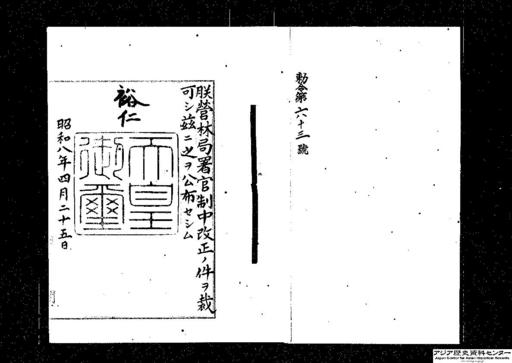 勅令第六十三號
朕營林局署官制中改正ノ件ヲ裁
可シ茲ニ之ヲ公布セシム
裕仁
天皇
御璽
昭和八年四月二十五日
アジア歴史資料センター
Japan Center for Asian Historical Records